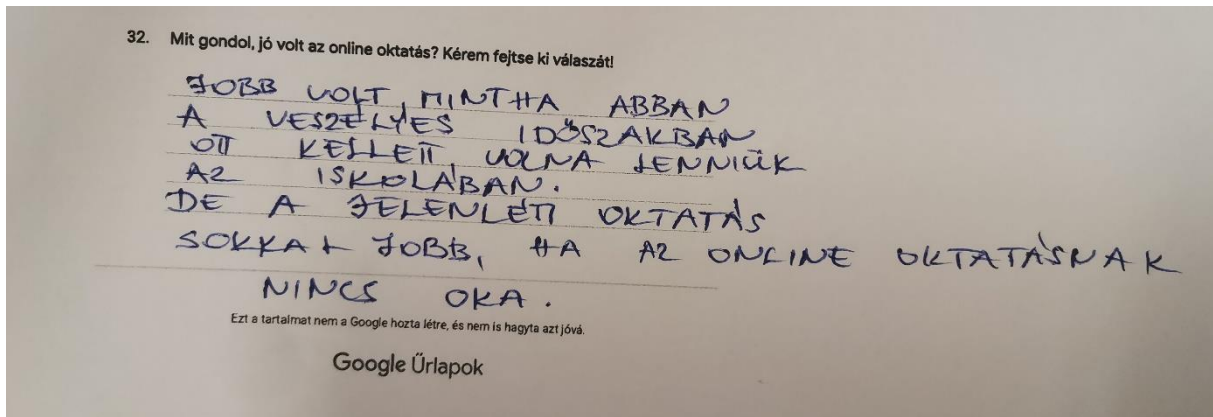 32. Mit gondol, jó volt az online oktatás? Kérem fejtse ki válaszát!
JOBB VOLT, MINTHA ABBAN
A VESZÉLYES IDŐSZAKBAN
OTT KELLETT VOLNA LENNIÜK
AZ ISKOLÁBAN.
DE A JELENLÉTI OKTATÁS
SOKKAL JOBB, HA AZ ONLINE OKTATÁSNAK
NINCS OKA.
Ezt a tartalmat nem a Google hozta létre, és nem is hagyta azt jóvá.
Google Űrlapok